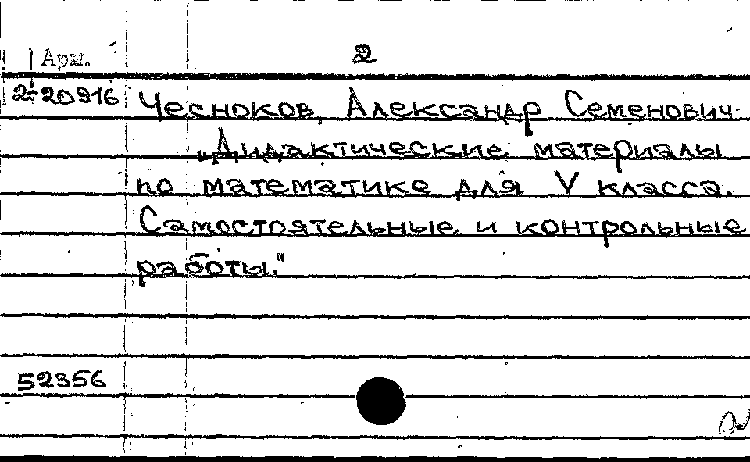 Арм. 2
2-20916 Чесноков, Александр Семенович.
„Дидактические материалы
по математике для V класса.
Самостоятельные и контрольные
работы."
52356